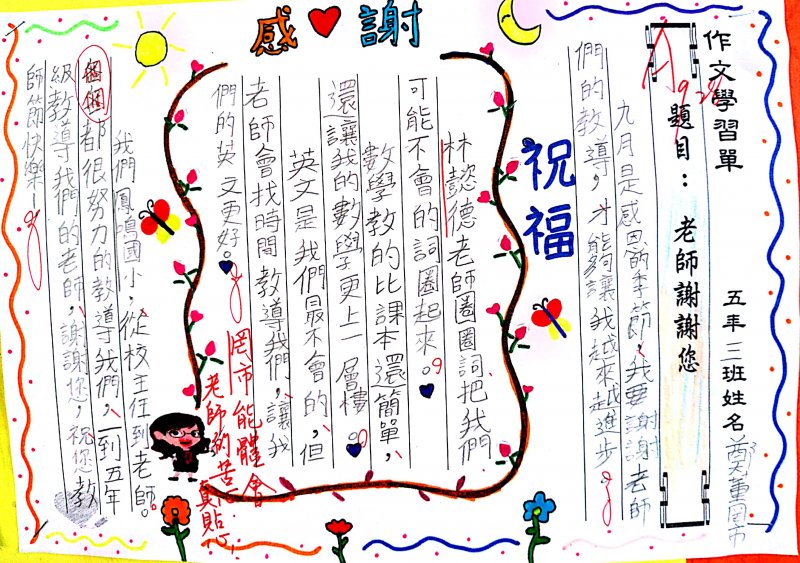 感謝
作文學習單
題目：老師謝謝您
五年三班姓名鄭董罔市
A
九月是感恩的季節，我要謝謝老師
們的教導，才能夠讓我越來越進步。
祝福
林懿德老師圈圈詞，把我們
可能不會的詞圈起來。
數學教的比課本還簡單，
還讓我的數學更上一層樓。
英文是我們最不會的，但
老師會找時間教導我們，讓我
們的英文更好。
罔市能體會
老師的苦心
真貼心！
我們鳳鳴國小，從校主任到老師。
個個都很努力的教導我們，一到五年
級教導我們的老師，謝謝您，祝您教
師節快樂！